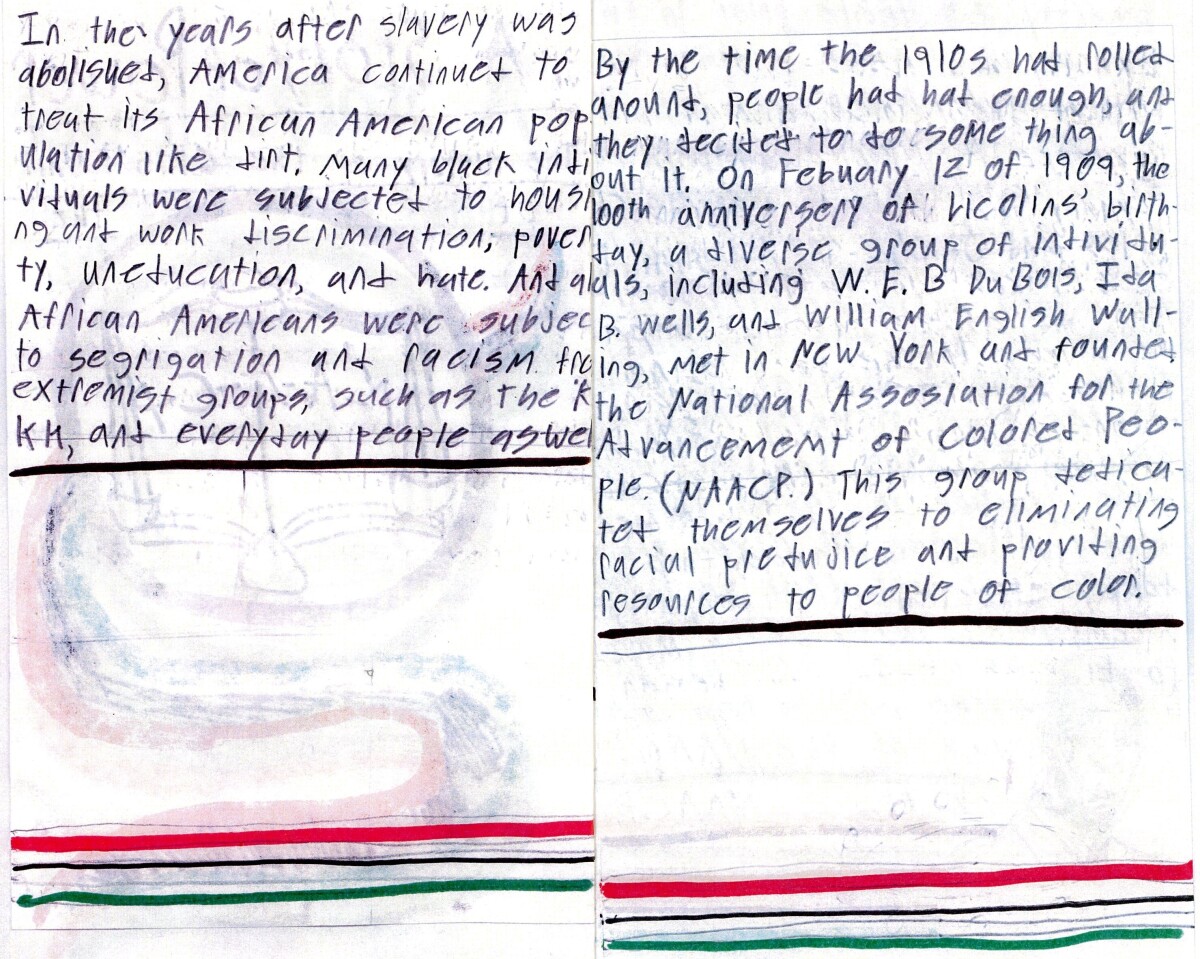 In the years after slavery was
abolished, America continued to
treat its African American pop
ulation like dirt. Many black indi
viduals were subjected to housi
ng and work discrimination, pover
ty, uneducation, and hate. And al
African Americans were subjec
to segrigation and racism fro
extremist groups, such as The K
KK, and everyday people aswel
By the time the 1910s had rolled
around, people had had enough, and
they decided to do some thing ab-
out it. On Febuary 12 of 1909, the
100th anniversery of Licolins' birth-
day, a diverse group of individu-
als, including W. E. B DuBois, Ida
B. Wells, and William English Wall-
ing, met in New York and founded
the National Assosiation for the
Advancememt of Colored Peo-
ple. (NAACP.) This group dedica-
ted themselves to eliminating
racial predujice and providing
resources to people of color.